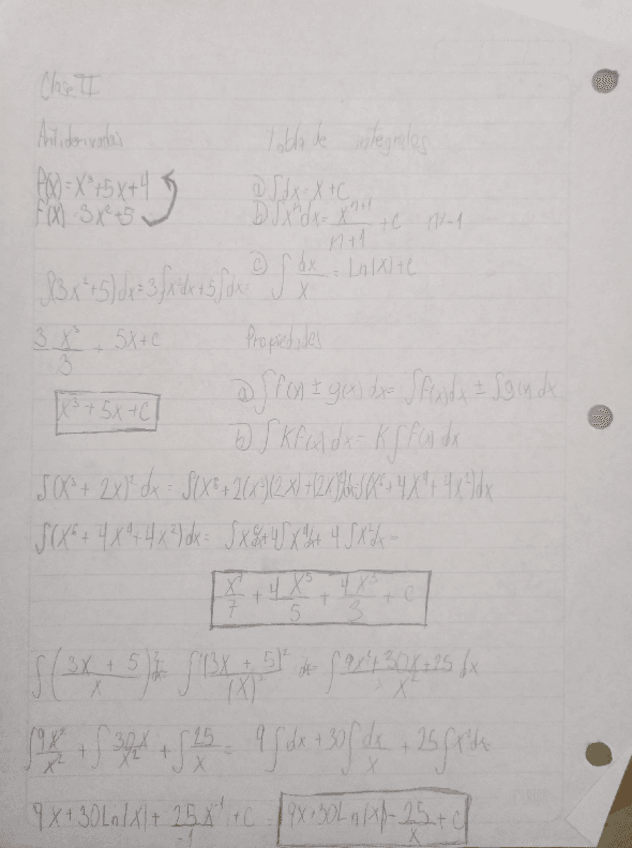 Clase II
Antiderivadas
Tabla de integrales
F(x) = x³+5x+4
a) ∫dx = x+c
F(x) = 3x²+5
b) ∫xⁿdx = xⁿ⁺¹/n+1 + c n≠-1
c) ∫ dx/x = Ln|x|+c
∫(3x²+5)dx = 3∫x²dx+5∫dx =
3 x³/3 + 5x+c
Propiedades
a) ∫f(x) ± g(x) dx = ∫f(x)dx ± ∫g(x) dx
x³+5x+C
b) ∫Kf(x)dx = K∫f(x)dx
∫(x³+2x)² dx = ∫(x⁶+2(x³)(2x)+(2x)²)dx = ∫(x⁶+4x⁴+4x²)dx
∫(x⁶+4x⁴+4x²)dx = ∫x⁶dx+4∫x⁴dx+4∫x²dx =
x⁷/7 + 4x⁵/5 + 4x³/3 + c
∫(3x+5/x)² dx ∫(3x+5)²/(x)² dx = ∫9x²+30x+25/x² dx
∫9x²/x² + ∫30x/x² + ∫25/x = 9∫dx+30∫dx/x + 25∫x⁻²dx
9x+30Ln|x|+ 25x⁻¹/-1 + c = 9x+30Ln|x| - 25/x + c